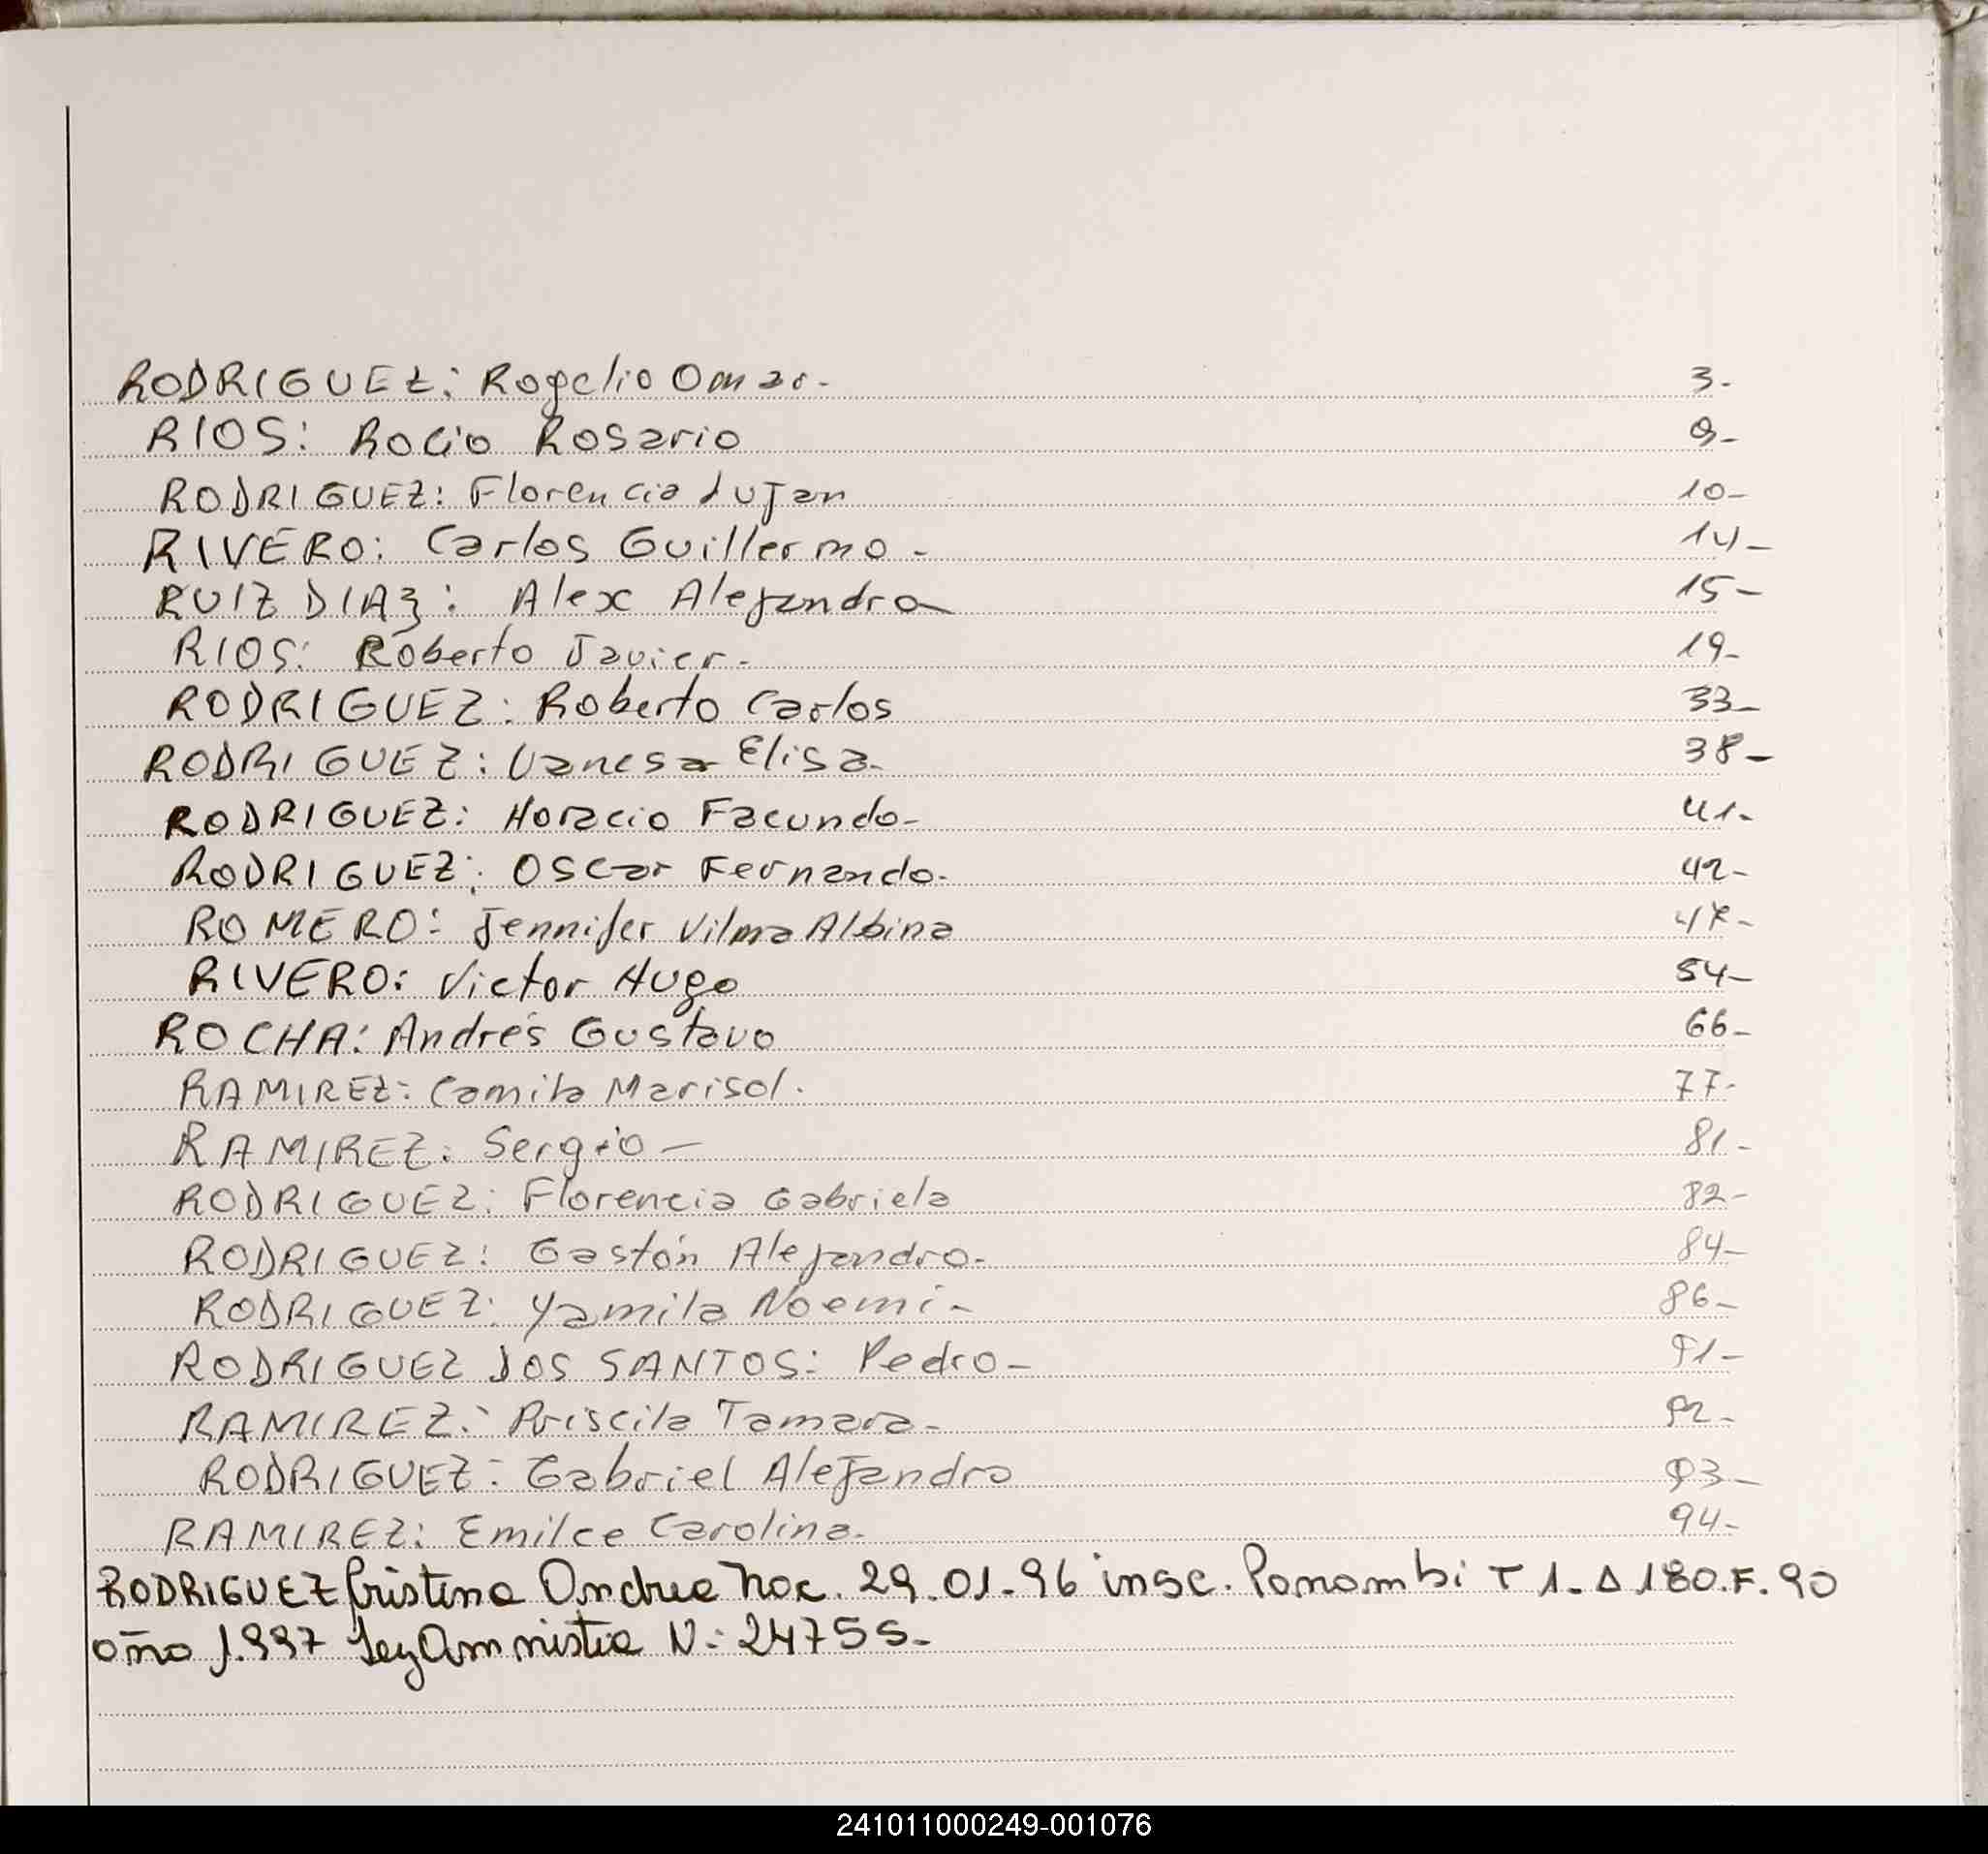 RODRIGUEZ: Rogelio Omar- 3-
RIOS: Rocío Rosario 9-
RODRIGUEZ: Florencia Lujan 10-
RIVERO: Carlos Guillermo- 14-
RUIZ DIAZ: Alex Alejandro 15-
RIOS: Roberto Javier- 19-
RODRIGUEZ: Roberto Carlos 33-
RODRIGUEZ: Vanesa Elisa- 38-
RODRIGUEZ: Horacio Facundo- 41-
RODRIGUEZ: Oscar Fernando- 42-
ROMERO: Jennifer Vilma Albina 47-
RIVERO: Victor Hugo 54-
ROCHA: Andrés Gustavo 66-
RAMIREZ: Camila Marisol. 77-
RAMIREZ: Sergio- 81-
RODRIGUEZ: Florencia Gabriela 82-
RODRIGUEZ: Gastón Alejandro- 84-
RODRIGUEZ: Yamila Noemí- 86-
RODRIGUEZ DOS SANTOS: Pedro- 91-
RAMIREZ: Priscila Tamara- 92-
RODRIGUEZ: Gabriel Alejandro 93-
RAMIREZ: Emilce Carolina- 94-
RODRIGUEZ Cristina Andrea Nac. 29.01-96 insc. Panambi T 1- A 180.F.90
año 1.997 Ley Amnistia N: 24755-
241011000249-001076